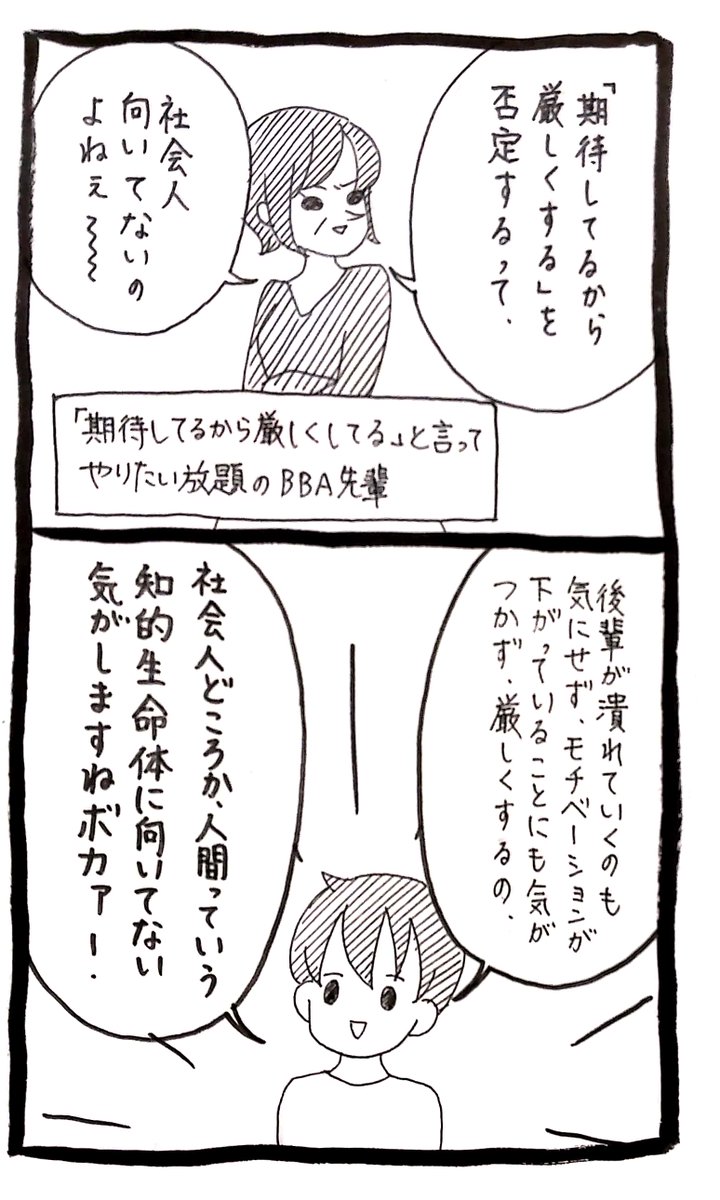 「期待してるから
厳しくする」を
否定するって、
社会人
向いてないの
よねぇ〜〜
「期待してるから厳しくしてる」と言って
やりたい放題のBBA先輩
後輩が潰れていくのも
気にせず、モチベーションが
下がっていることにも気が
つかず、厳しくするの、
社会人どころか、人間っていう
知的生命体に向いてない
気がしますねボカァー!